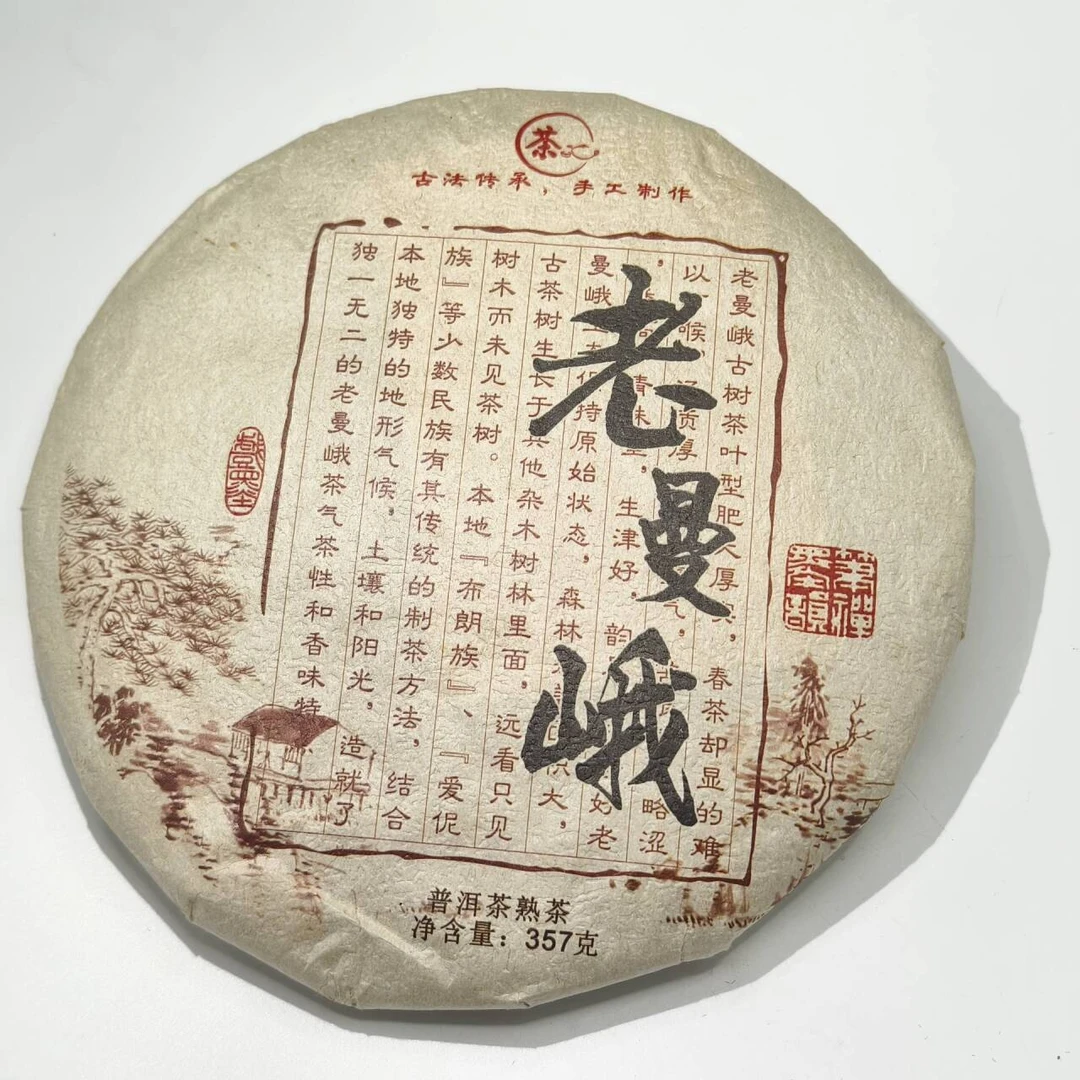 茶
古法传承，手工制作
老曼峨
老曼峨古树茶叶型肥 厚 ，春茶却显的难
以 喉 质厚 气， 略涩
， 生津好，韵 好老
曼峨 持原始状态，森林 大，
古茶树生长于其他杂木树林里面，远看只见
树木而未见茶树。本地『布朗族』、『爱伲
族』等少数民族有其传统的制茶方法，结合
本地独特的地形气候，土壤和阳光，造就了
独一无二的老曼峨茶气茶性和香味特
普洱茶熟茶
净含量：357克